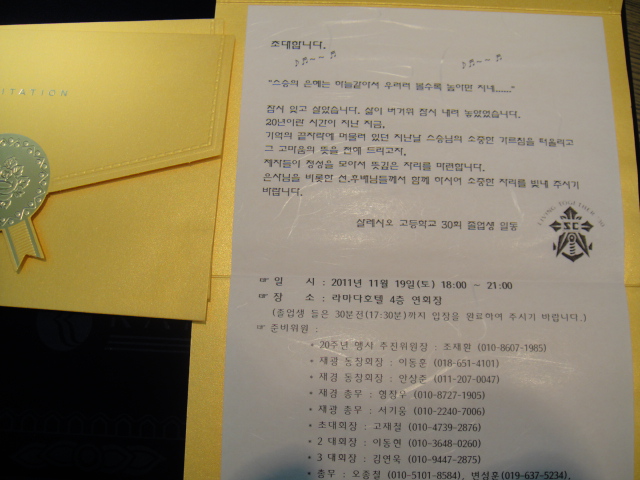 ITATION
초대합니다.
"스승의 은혜는 하늘같아서 우러러 볼수록 높아만 지네......"
잠시 잊고 살았습니다. 삶이 버거워 잠시 내려 놓았었습니다.
20년이란 시간이 지난 지금,
기억의 끝자락에 머물러 있던 지난날 스승님의 소중한 가르침을 떠올리고
그 고마움의 뜻을 전해 드리고자,
제자들이 정성을 모아서 뜻깊은 자리를 마련합니다.
은사님을 비롯한 선,후배님들께서 함께 하시어 소중한 자리를 빛내 주시기
바랍니다.
살레시오 고등학교 30회 졸업생 일동
LIVING TOGETHER
☞ 일 시 : 2011년 11월 19일(토) 18:00 ~ 21:00
☞ 장 소 : 라마다호텔 4층 연회장
(졸업생 들은 30분전(17:30분)까지 입장을 완료하여 주시기 바랍니다.)
☞ 준비위원 :
* 20주년 행사 추진위원장 : 조재환 (010-8607-1985)
* 재광 동창회장 : 이동훈 (018-651-4101)
* 재경 동창회장 : 안상준 (011-207-0047)
* 재경 총무 : 형장우 (010-8727-1905)
* 재광 총무 : 서기웅 (010-2240-7006)
* 초대회장 : 고재철 (010-4739-2876)
* 2 대회장 : 이동현 (010-3648-0260)
* 3 대회장 : 김연욱 (010-9447-2875)
* 총무 : 오종절 (010-5101-8584), 변성훈(019-637-5234),